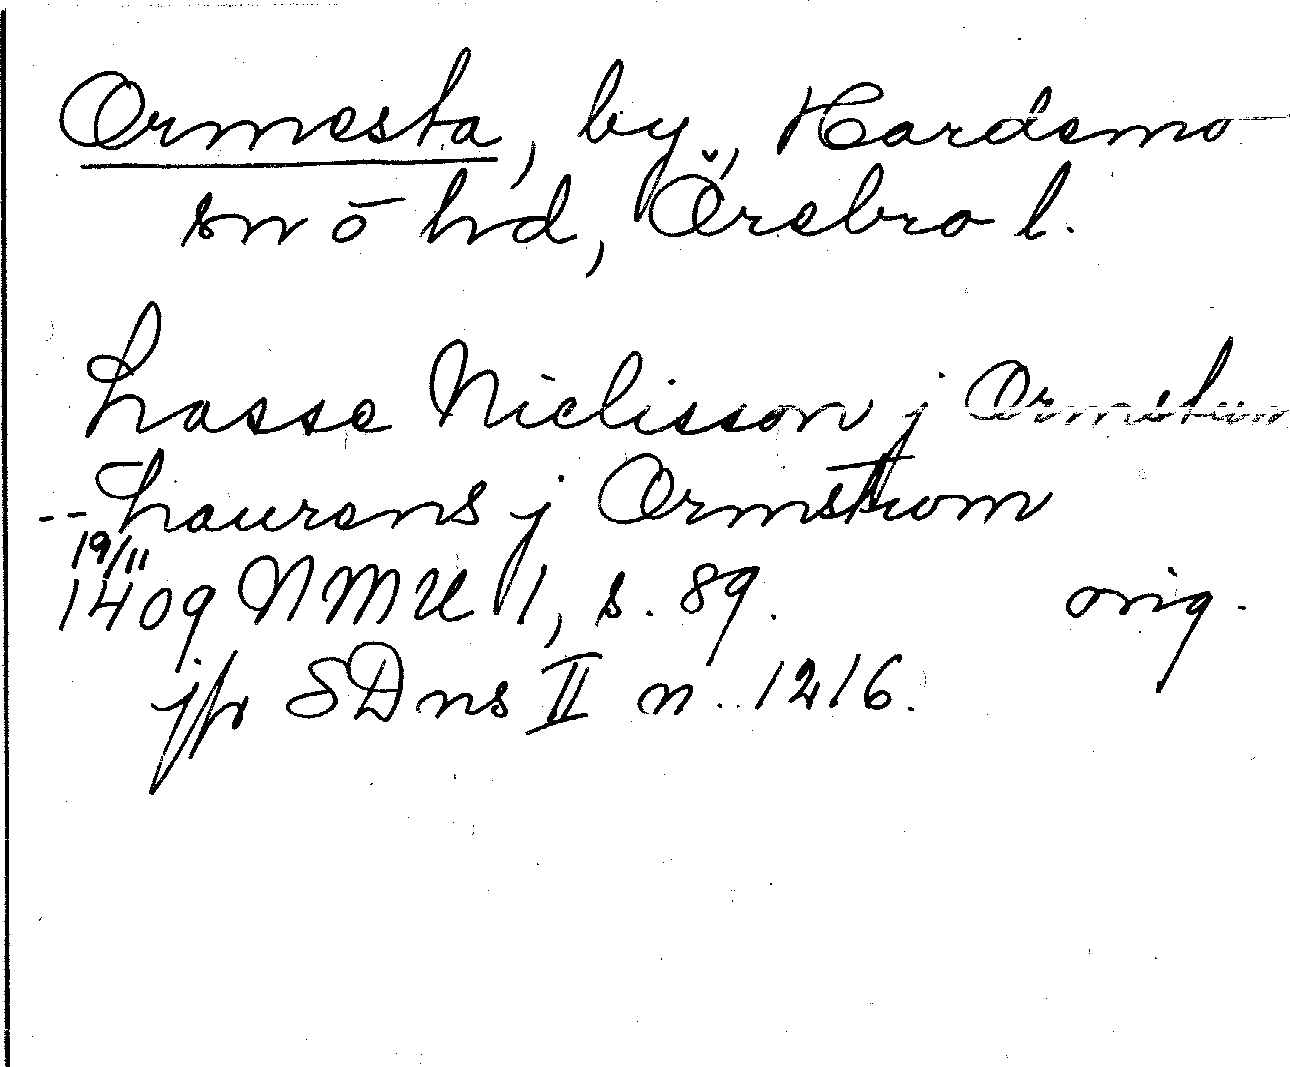 Ormesta, by, Hardemo
sn o hd, Örebro l.
Lasse Niclisson j
-- Laurens j Ormstum
19/11
1409 NMU 1, s. 89. orig.
jfr SDns II n. 1216.